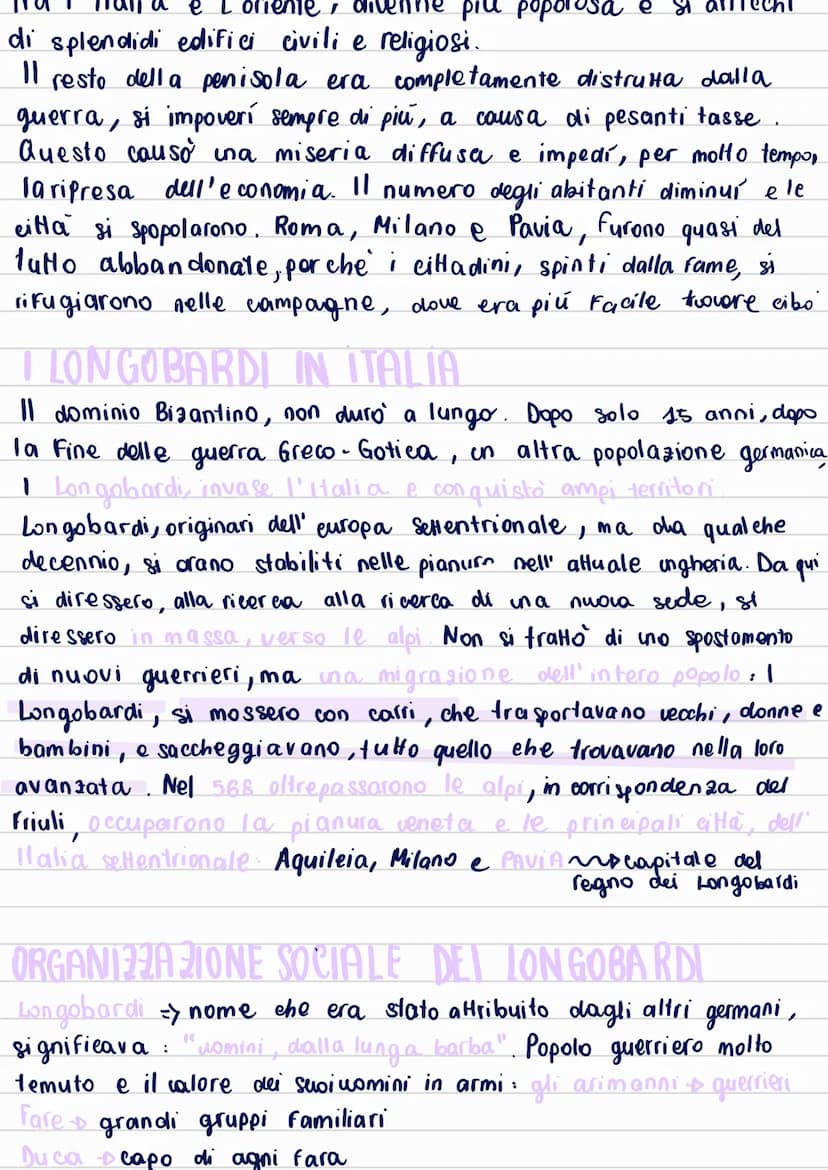 tra l'Italia e L'oriente, divenne più poporosa e si arricchì
di splendidi edifici civili e religiosi.
Il resto della penisola era completamente distrutta dalla
guerra, si impoverí sempre di piú, a causa di pesanti tasse.
Questo causò una miseria diffusa e impedí, per molto tempo,
laripresa dell'economia. Il numero degli abitanti diminuí e le
città si spopolarono. Roma, Milano e Pavia, furono quasi del
tutto abbandonate, perchè i cittadini, spinti dalla fame, si
rifugiarono nelle campagne, dove era piú facile trovare cibo
I LONGOBARDI IN ITALIA
Il dominio Bizantino, non durò a lungo. Dopo solo 15 anni, dopo
la fine delle guerra Greco-Gotica, un altra popolazione germanica,
I Longobardi, invase l'Italia e conquistò ampi territori
Longobardi, originari dell'europa settentrionale, ma da qualche
decennio, si erano stabiliti nelle pianura nell'attuale ungheria. Da qui
si diressero, alla ricerca alla ricerca di una nuova sede, si
diressero in massa, verso le alpi. Non si trattò di uno spostamento
di nuovi guerrieri, ma una migrazione dell'intero popolo: I
Longobardi, si mossero con carri, che trasportavano vecchi, donne e
bambini, e saccheggiavano, tutto quello che trovavano nella loro
avanzata. Nel 568 oltrepassarono le alpi, in corrispondenza del
Friuli, occuparono la pianura veneta e le principali città, dell'
Italia settentrionale. Aquileia, Milano e PAVIA ⇝ capitale del
regno dei Longobardi
ORGANIZZAZIONE SOCIALE DEI LONGOBARDI
Longobardi => nome che era stato attribuito dagli altri germani,
significava: "uomini, dalla lunga barba". Popolo guerriero molto
temuto e il valore dei suoi uomini in armi: gli arimanni → guerrieri
Fare → grandi gruppi familiari
Duca → capo di agni fara